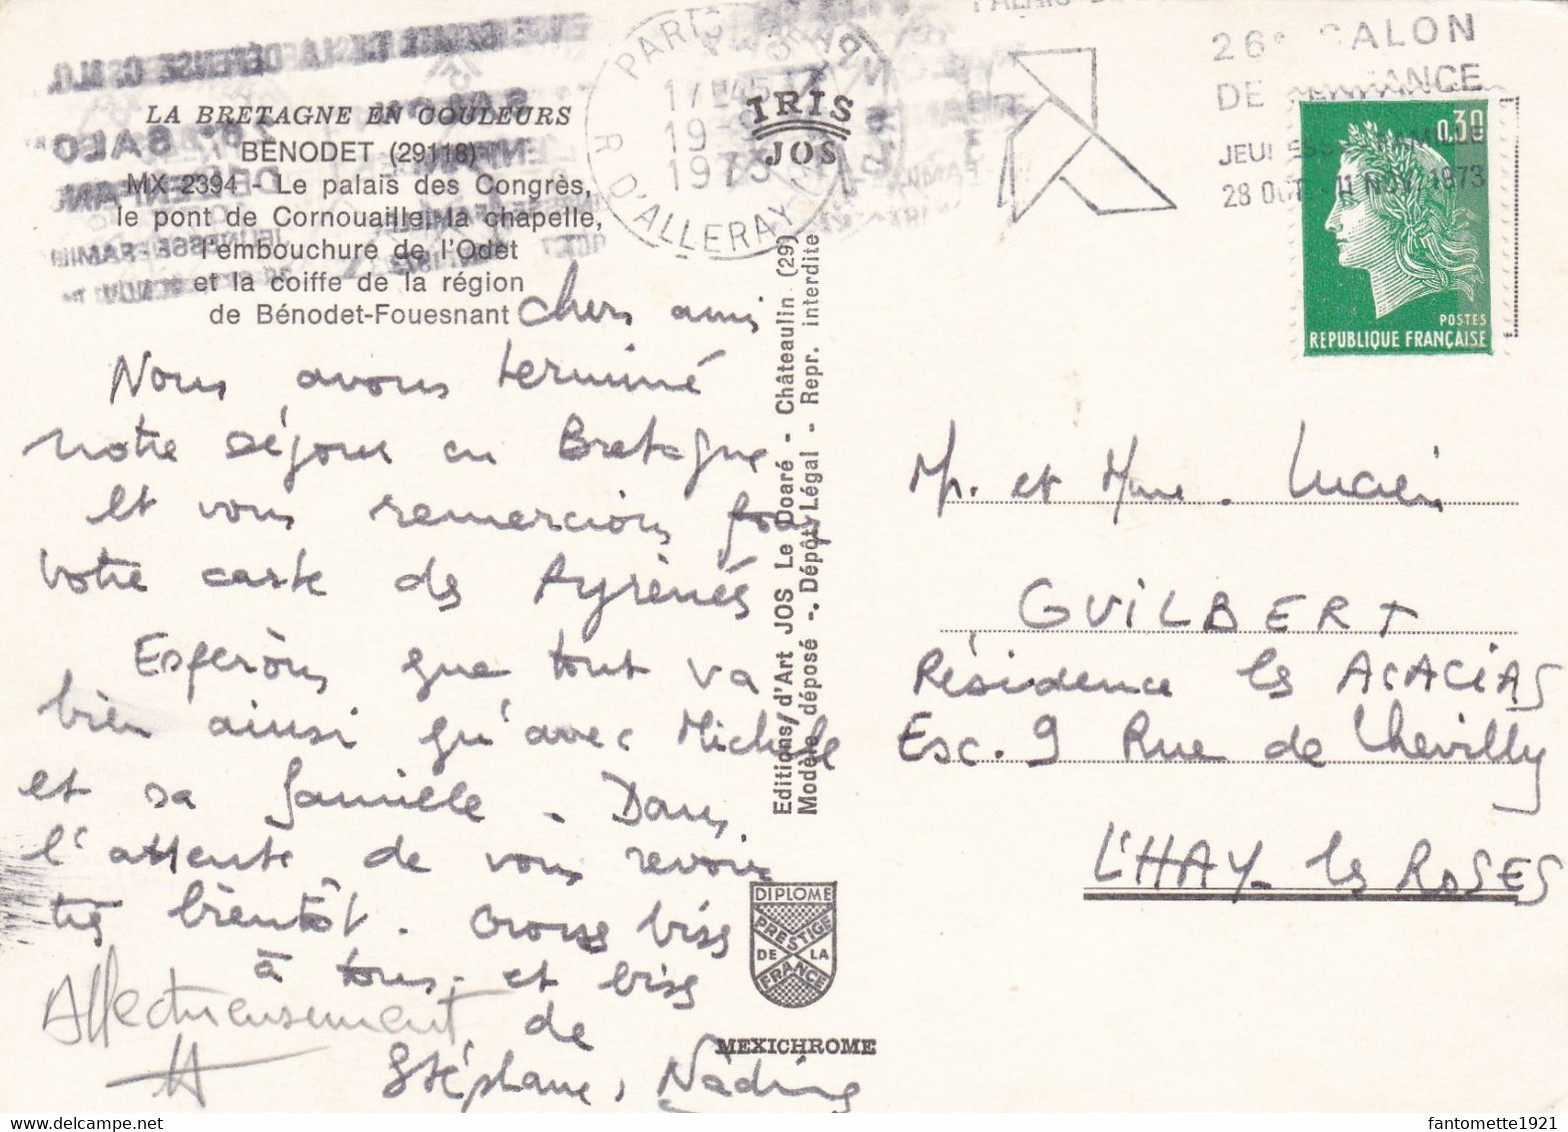 LA BRETAGNE EN COULEURS
BENODET (29118)
MX 2394 - Le palais des Congrès,
le pont de Cornouaille, la chapelle,
l'embouchure de l'Odet
et la coiffe de la région
de Bénodet-Fouesnant
Chers amis
Nous avons terminé
notre séjour en Bretagne
et vous remercions pour
votre carte des Pyrènés
Esperòns que tout va
bien ainsi qu'avec Michele
et sa famille. Dans
l'attente de vous revoir
très bientôt. Grosses biss
à tous. et biss
de
Stéphane, Nadine
Affectueusement
IRIS
JOS
Editions d'Art JOS Le Doaré - Châteaulin (29)
Modèle déposé -. Dépôt Légal - Repr. interdite
DIPLOME
PRESTIGE
DE LA
FRANCE
MEXICHROME
PARIS
17H45
19-9
1973
R D'ALLERAY
26e SALON
DE L'ENFANCE
JEUNESSE FAMILLE
28 OCT 11 NOV 1973
0,30
POSTES
REPUBLIQUE FRANÇAISE
Mr. et Mme. Lucien
GUILBERT
Résidence les ACACIAS
Esc. 9 Rue de Chevilly
L'HAY les ROSES
fantomette1921